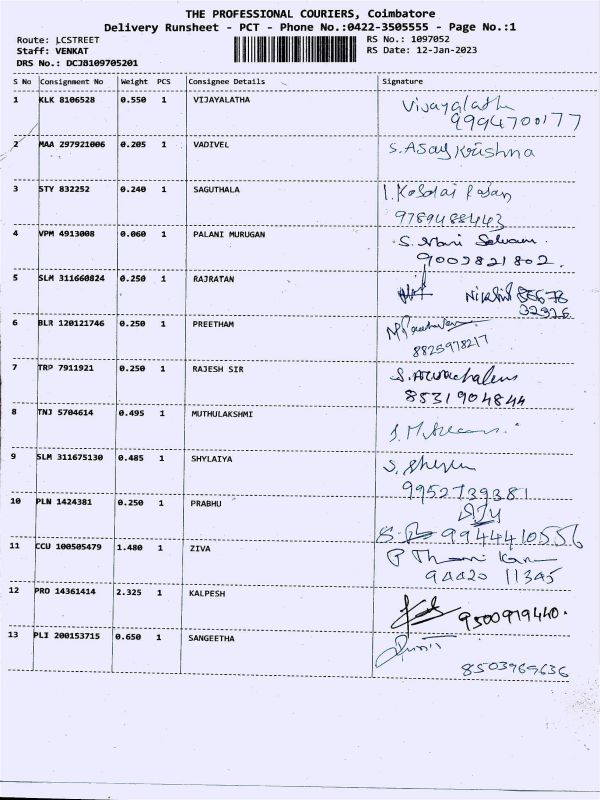 THE PROFESSIONAL COURIERS, Coimbatore
Delivery Runsheet - PCT - Phone No.:0422-3505555 - Page No.:1
Route: LCSTREET
Staff: VENKAT
DRS No.: DCJB109705201
RS No.: 1097052
RS Date: 12-Jan-2023
S No Consignment No Weight PCS Consignee Details Signature
1 KLK 8106528 0.550 1 VIJAYALATHA Vijayalatha
9994700177
2 MAA 297921006 0.205 1 VADIVEL S. Asay Krishna
3 STY 832252 0.240 1 SAGUTHALA
9789488443
4 VPM 4913008 0.060 1 PALANI MURUGAN S. Selvam.
9003821802.
5 SLM 311660824 0.250 1 RAJRATAN Nikhil 85678
32926
6 BLR 120121746 0.250 1 PREETHAM
8825978217
7 TRP 7911921 0.250 1 RAJESH SIR S. Arunachalam
8531904844
8 TNJ 5704614 0.495 1 MUTHULAKSHMI
9 SLM 311675130 0.485 1 SHYLAIYA
9952739381
10 PLN 1424381 0.250 1 PRABHU
9944410556
11 CCU 100505479 1.480 1 ZIVA
94420 11345
12 PRO 14361414 2.325 1 KALPESH 9500919440.
13 PLI 200153715 0.650 1 SANGEETHA
8503969636